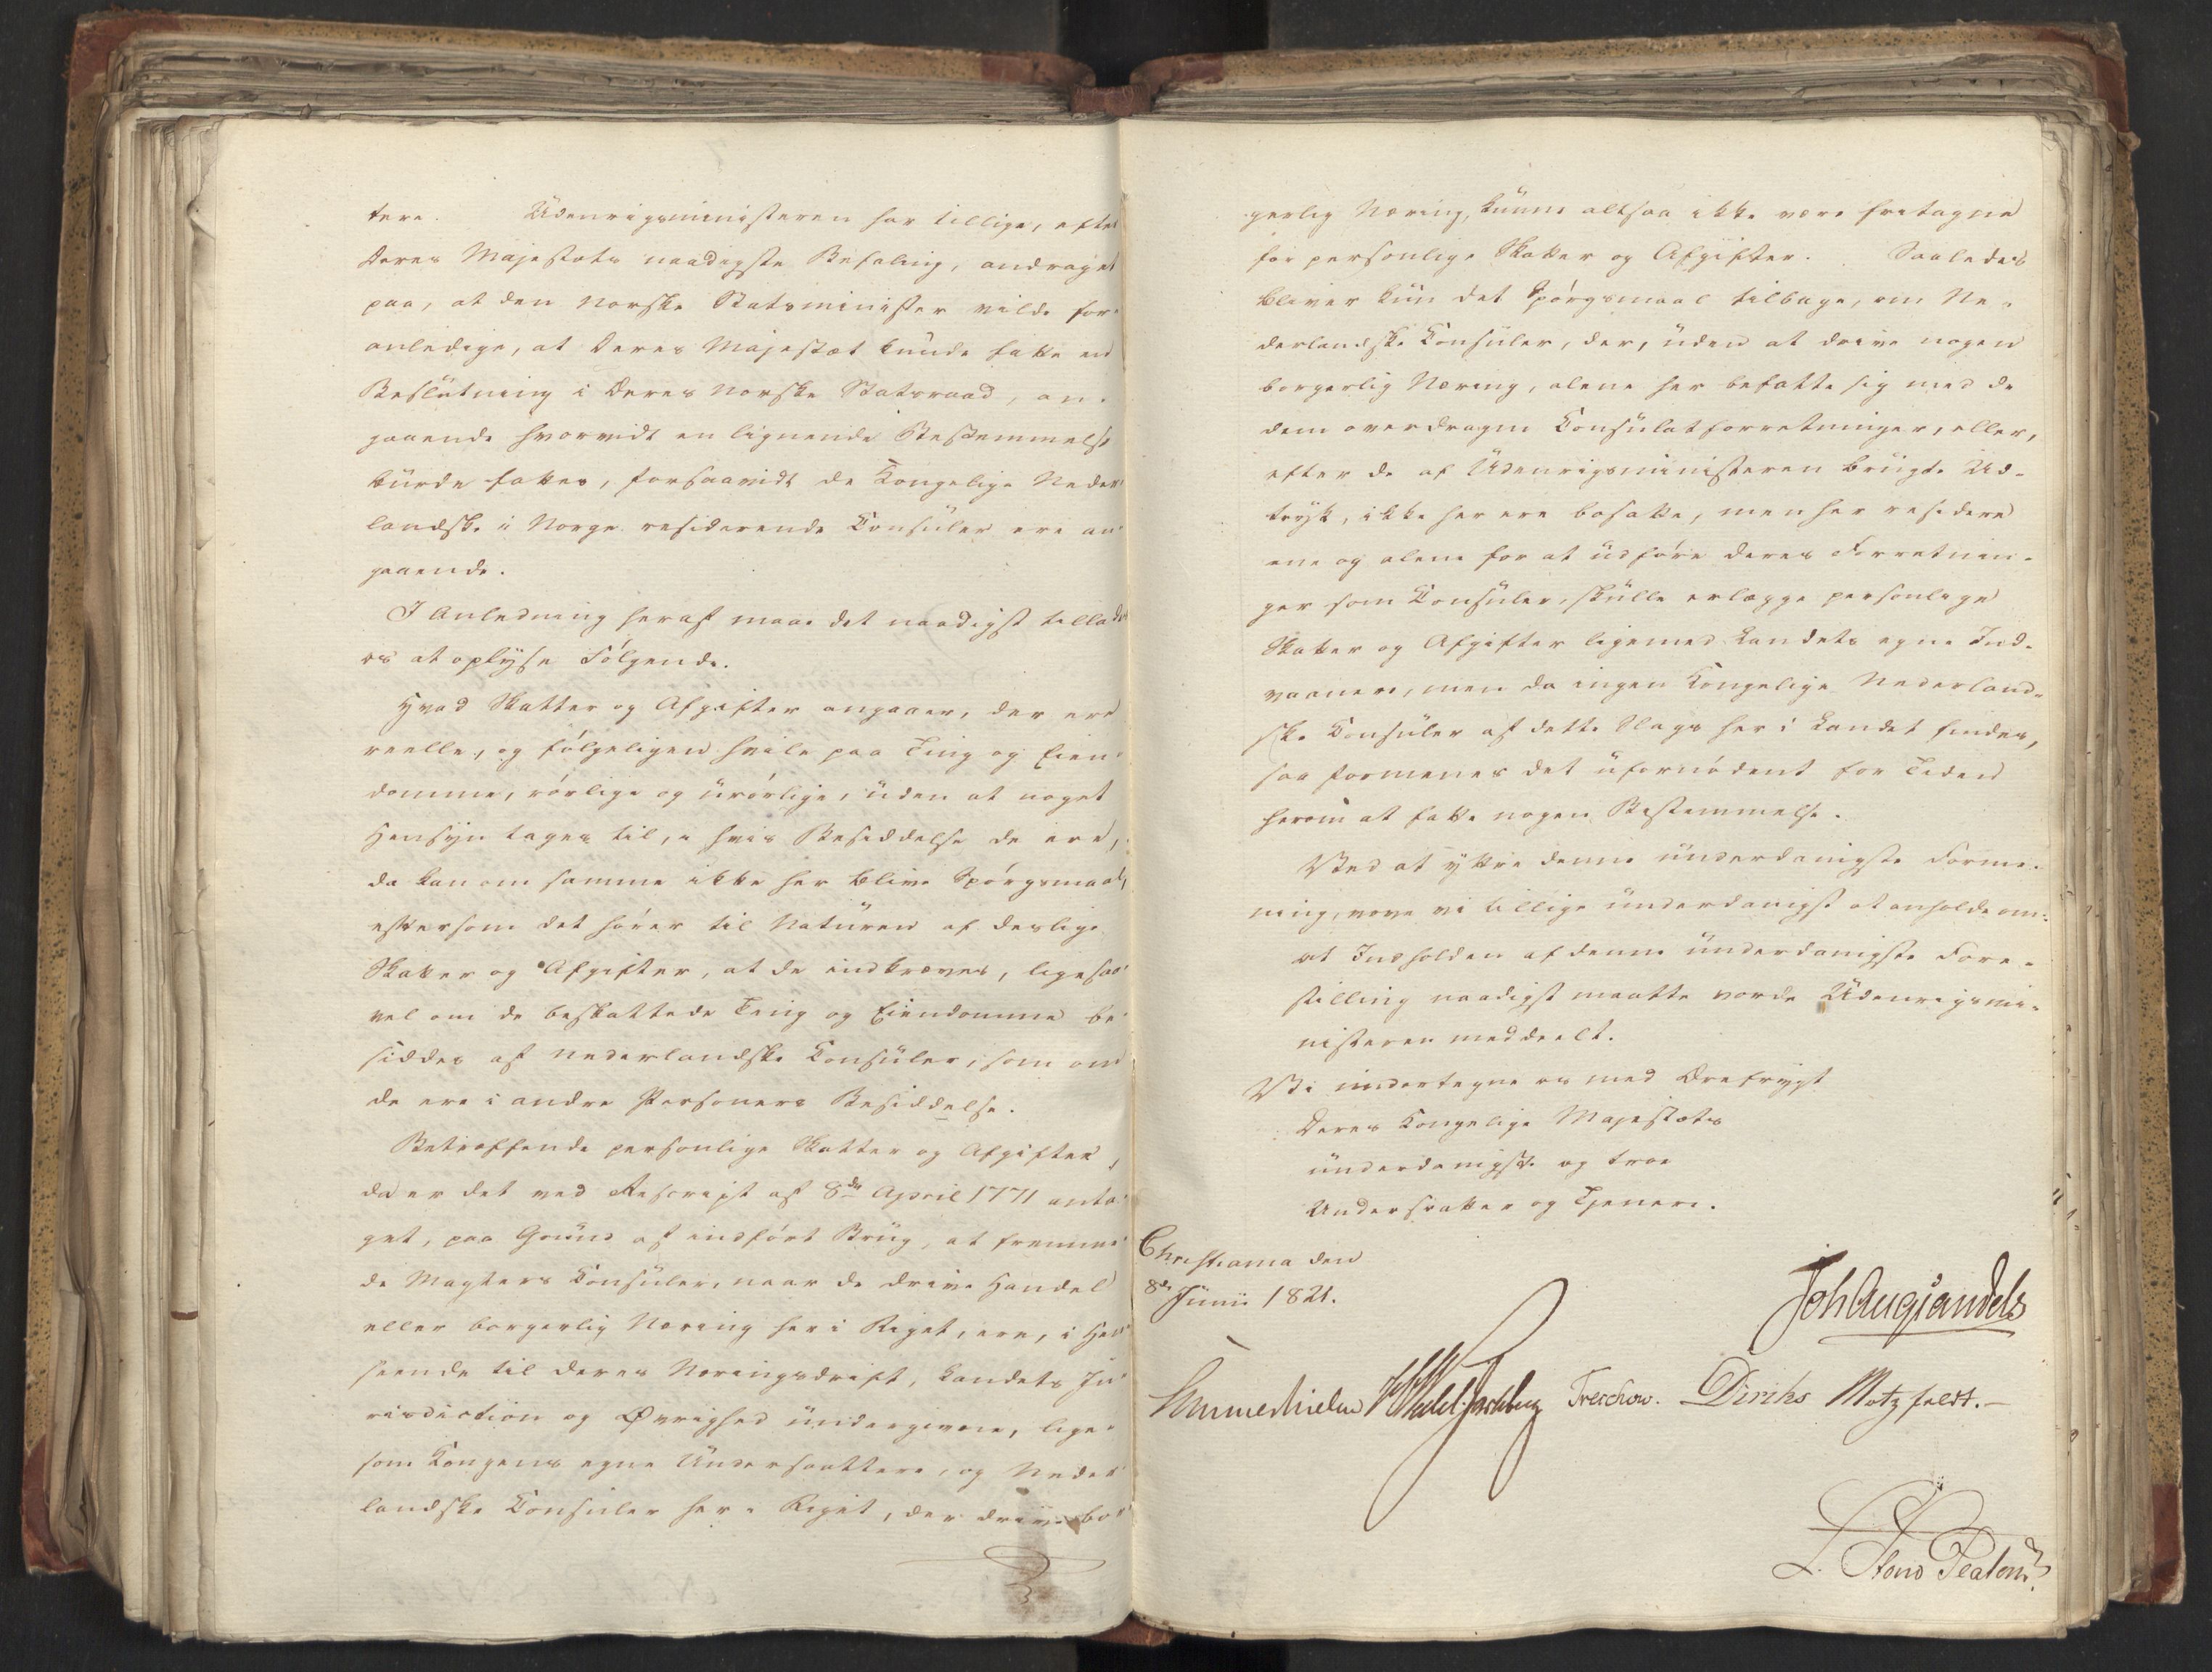 tere. Udenrigsministeren har tillige, efter
Deres Majestæts naadigste Befaling, andraget
paa, at den norske Statsminister vilde for-
anledige, at Deres Majestæt kunde fatte en
Beslutning i Deres norske Statsraad, an-
gaaende hvorvidt en lignende Bestemmelse
burde fattes, forsaavidt de Kongelige Neder-
landske i Norge residerende Consuler ere an-
gaaende.
I Anledning heraf maae det naadigst tillades
os at oplyse Følgende.
Hvad Skatter og Afgifter angaaer, der ere
reelle, og følgeligen hvile paa Ting og Eien-
domme, rørlige og urørlige, uden at noget
Hensyn tages til, i hvis Besiddelse de ere,
da kan om samme ikke her blive Spørgsmaal,
eftersom det hører til Naturen af deslige
Skatter og Afgifter, at de indkræves, ligesaa-
vel om de beskattede Ting og Eiendomme be-
siddes af nederlandske Consuler, som om
de ere i andre Personers Besiddelse.
Betræffende personlige Skatter og Afgifter,
da er det ved Rescript af 8de April 1771 anta-
get, paa Grund af indført Brug, at fremme-
de Magters Consuler, naar de drive Handel
eller borgerlig Næring her i Riget, ere, i Hen-
seende til deres Næringsdrift, Landets Ju-
risdiction og Øvrighed undergivne, lige-
som Kongens egne Undersaattere, og Neder-
landske Consuler her i Riget, der drive bor-
gerlig Næring, kunne altsaa ikke være fritagne
for personlige Skatter og Afgifter. Saaledes
bliver kun det Spørgsmaal tilbage, om Ne-
derlandske Consuler, der, uden at drive nogen
borgerlig Næring, alene her befatte sig med de
dem overdragne Consulatforretninger, eller,
efter de af Udenrigsministeren brugte Ud-
tryk, ikke her ere bosatte, men her residere
ene og alene for at udføre deres Forretnin-
ger som Consuler, skulle erlægge personlige
Skatter og Afgifter ligemed Landets egne Ind-
vaanere, men da ingen Kongelige Nederland-
ske Consuler af dette Slags her i Landet findes,
saa formenes det ufornødent for Tiden
herom at fatte nogen Bestemmelse.
Ved at yttre denne underdanigste Forme-
ning, vove vi tillige underdanigst at anholde om:
at Indholden af denne underdanigste Fore-
stilling naadigst maatte vorde Udenrigsmi-
nisteren meddeelt.
Vi undertegne os med Ærefrygt
Deres Kongelige Majestæts
underdanigste og troe
Undersatter og Tjenere.
Christiania den
8de Junii 1821.
Joh Aug Sandels
Sommerhielm Wedel Jarlsberg Treschow. Diriks Motzfeldt.
L. Stoud Platou